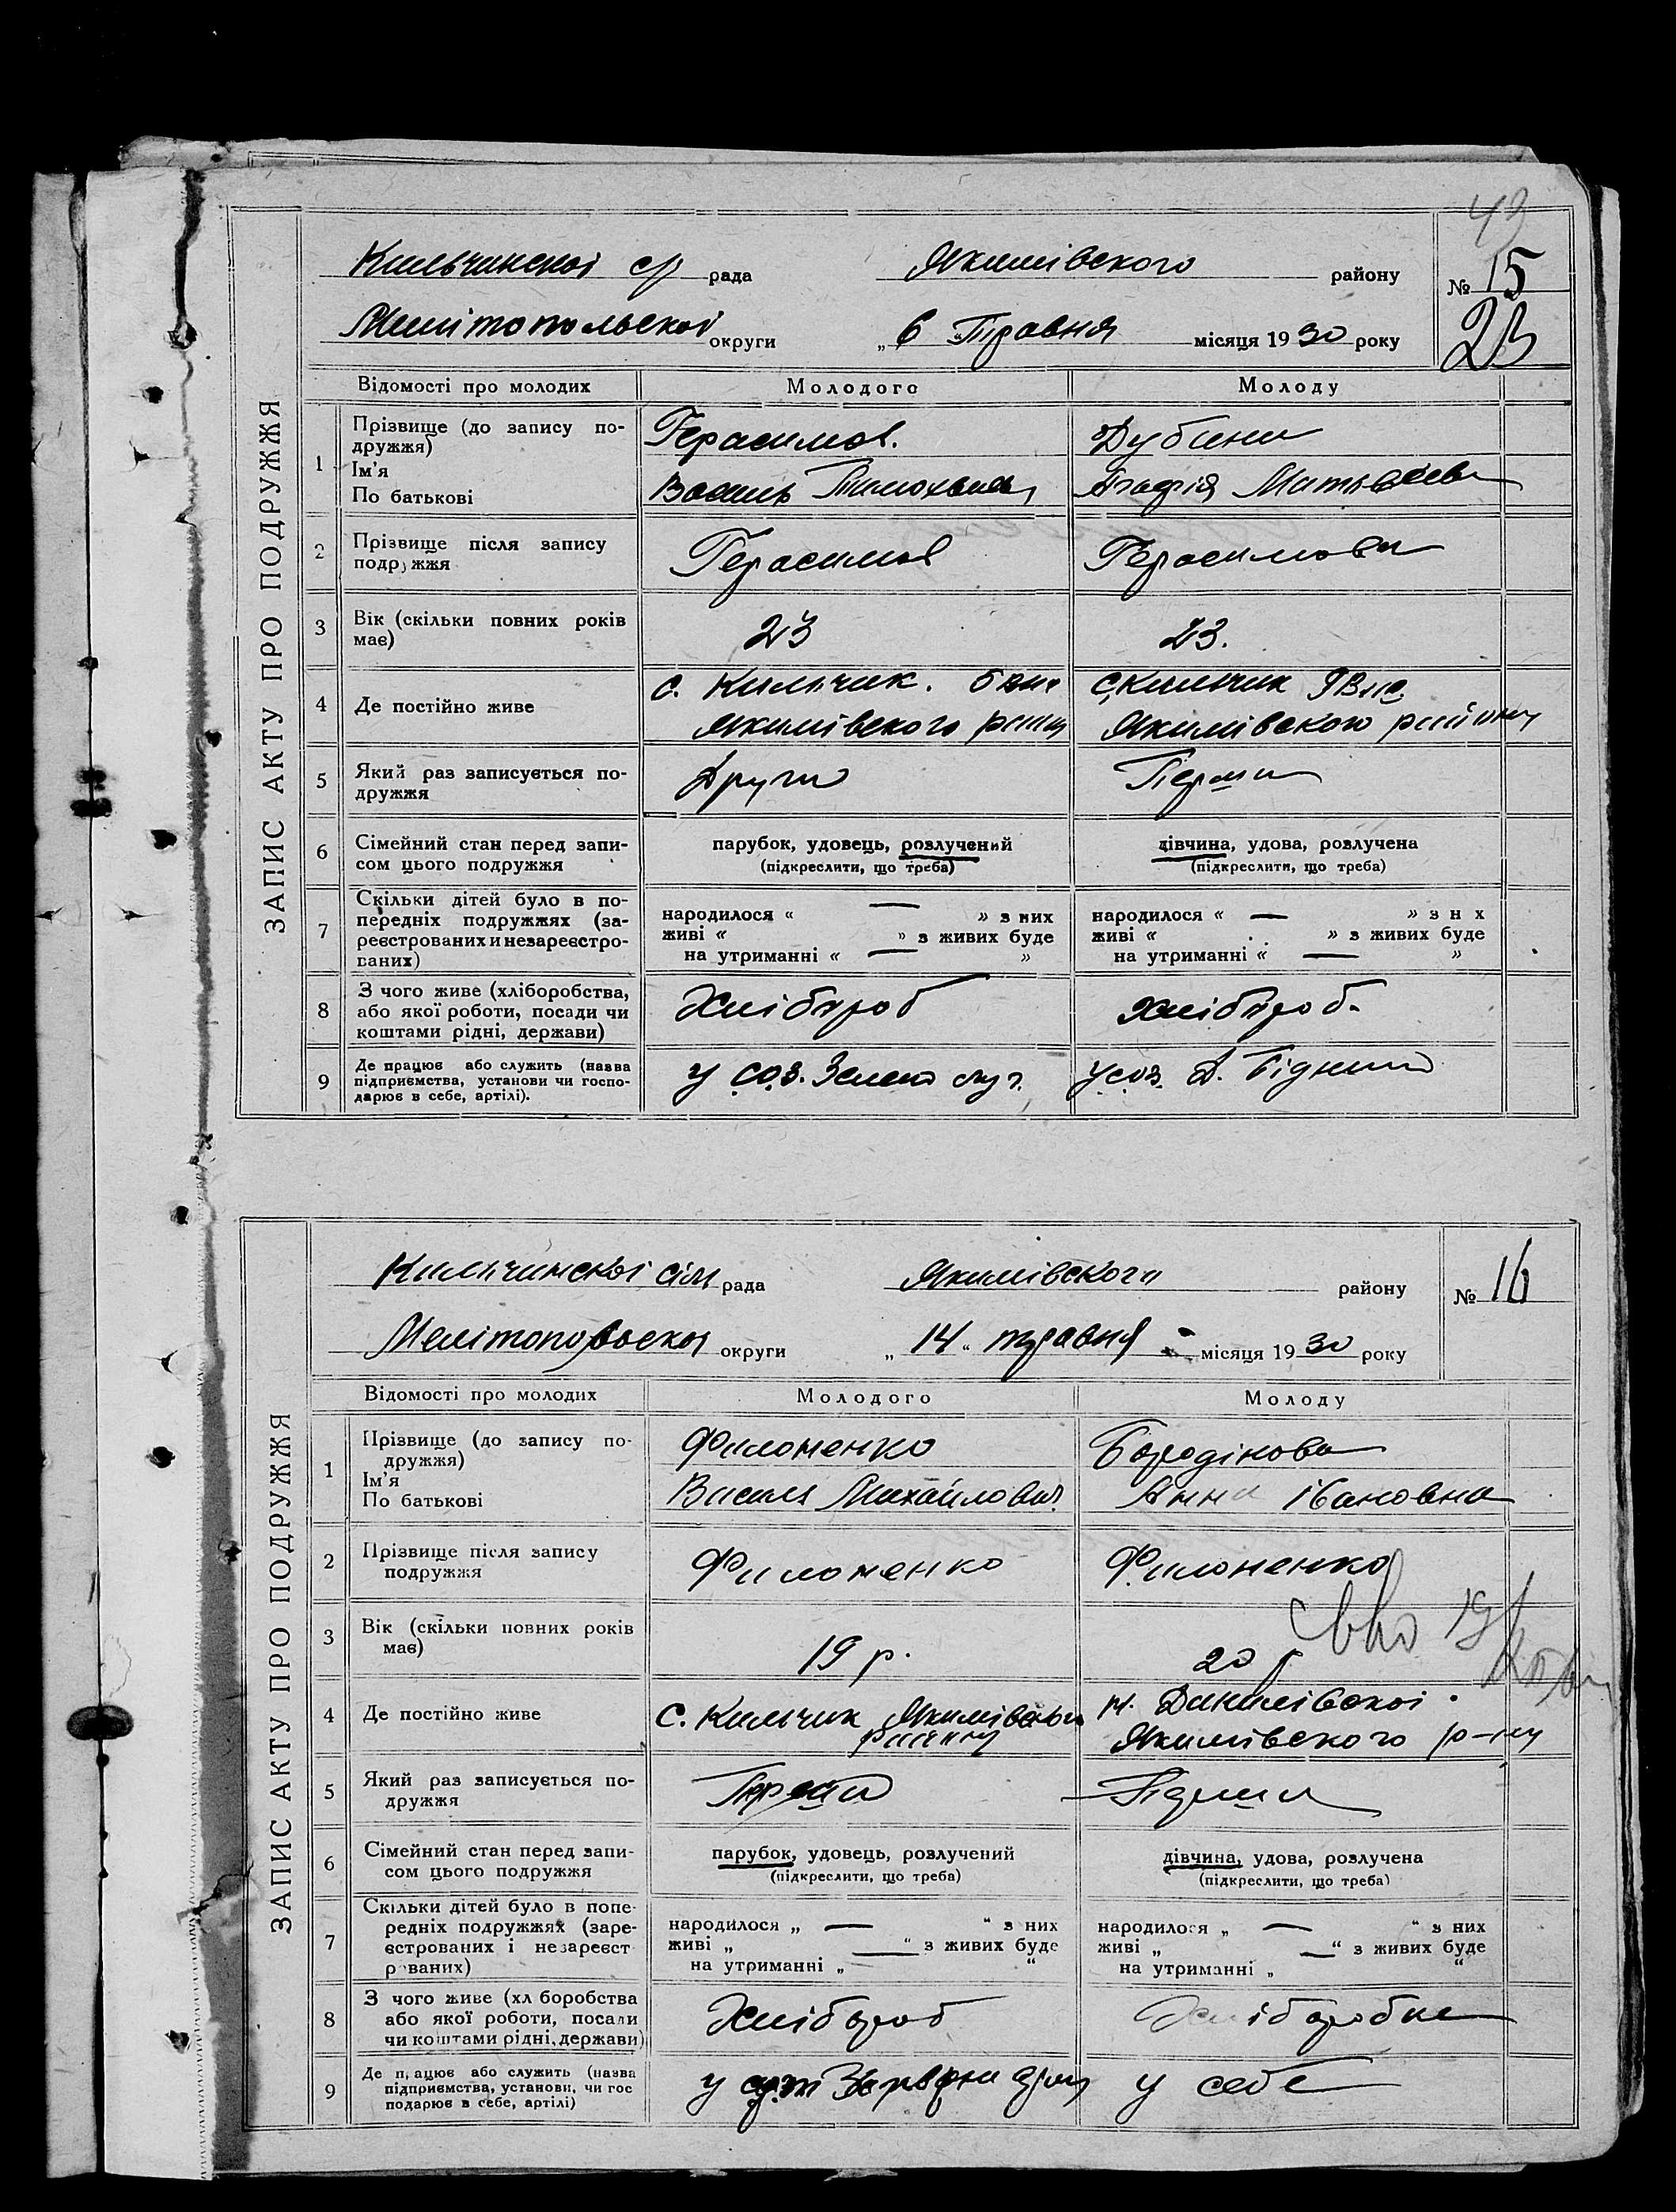 49
ЗАПИС АКТУ ПРО ПОДРУЖЖЯ
Кильчинскоі с/р рада Якимівского району № 15
Мелітопольскоі округи „ 6 “ Травня місяця 1930 року 23
Відомості про молодих Молодого Молоду
1 Прізвище (до запису по-
дружжя)
Ім'я
По батькові
Герасимов. Дубина
Василь Тимохвіев Агафія Матьвѣева
2 Прізвище після запису
подружжя
Герасимов Герасимова
3 Вік (скільки повних років
має)
23 23.
4 Де постійно живе
с. Кильчик. с. Кильчик
Якимівского Якимівского району
5 Який раз записується по-
дружжя
Други Перши
6 Сімейний стан перед запи-
сом цього подружжя
парубок, удовець, розлучений дівчина, удова, розлучена
(підкреслити, що треба) (підкреслити, що треба)
7 Скільки дітей було в по-
передніх подружжях (за-
реєстрованих и незареєстро-
ваних)
народилося « — » з них народилося « — » з н х
живі « » з живих буде живі « » з живих буде
на утриманні « — » на утриманні « — »
8 З чого живе (хліборобства,
або якої роботи, посади чи
коштами рідні, держави)
Хлібороб хлібороб.
9 Де працює або служить (назва
підприємства, установи чи госпо-
дарює в себе, артілі).
у соз. Зелени луг. у соз. Бідний
ЗАПИС АКТУ ПРО ПОДРУЖЖЯ
Кильчинскоі сіл рада Якимівского району № 16
Мелітопольскоі округи „ 14 “ травня місяця 1930 року
Відомості про молодих Молодого Молоду
1 Прізвище (до запису по-
дружжя)
Ім'я
По батькові
Филоненко Бородінова
Василь Михайлович Анна Івановна
2 Прізвище після запису
подружжя
Филоненко Филоненко
3 Вік (скільки повних років
має)
19 р. 20 р.
4 Де постійно живе
с. Кильчик Якимівского Данилівскоі
району Якимівского р-ну
5 Який раз записується по-
дружжя
6 Сімейний стан перед запи-
сом цього подружжя
парубок, удовець, розлучений дівчина, удова, розлучена
(підкреслити, що треба) (підкреслити, що треба)
7 Скільки дітей було в попе-
редніх подружжях (заре-
єстрованих і незареєст
рованих)
народилося „ — “ з них народилося „ — “ з них
живі „ — “ з живих буде живі „ — “ з живих буде
на утриманні „ “ на утриманні „ “
8 З чого живе (хл боробства
або якої роботи, посади
чи коштами рідні, держави)
Хлібороб Хліборобка
9 Де працює або служить (назва
підприємства, установи, чи гос
подарює в себе, артілі)
у у себе